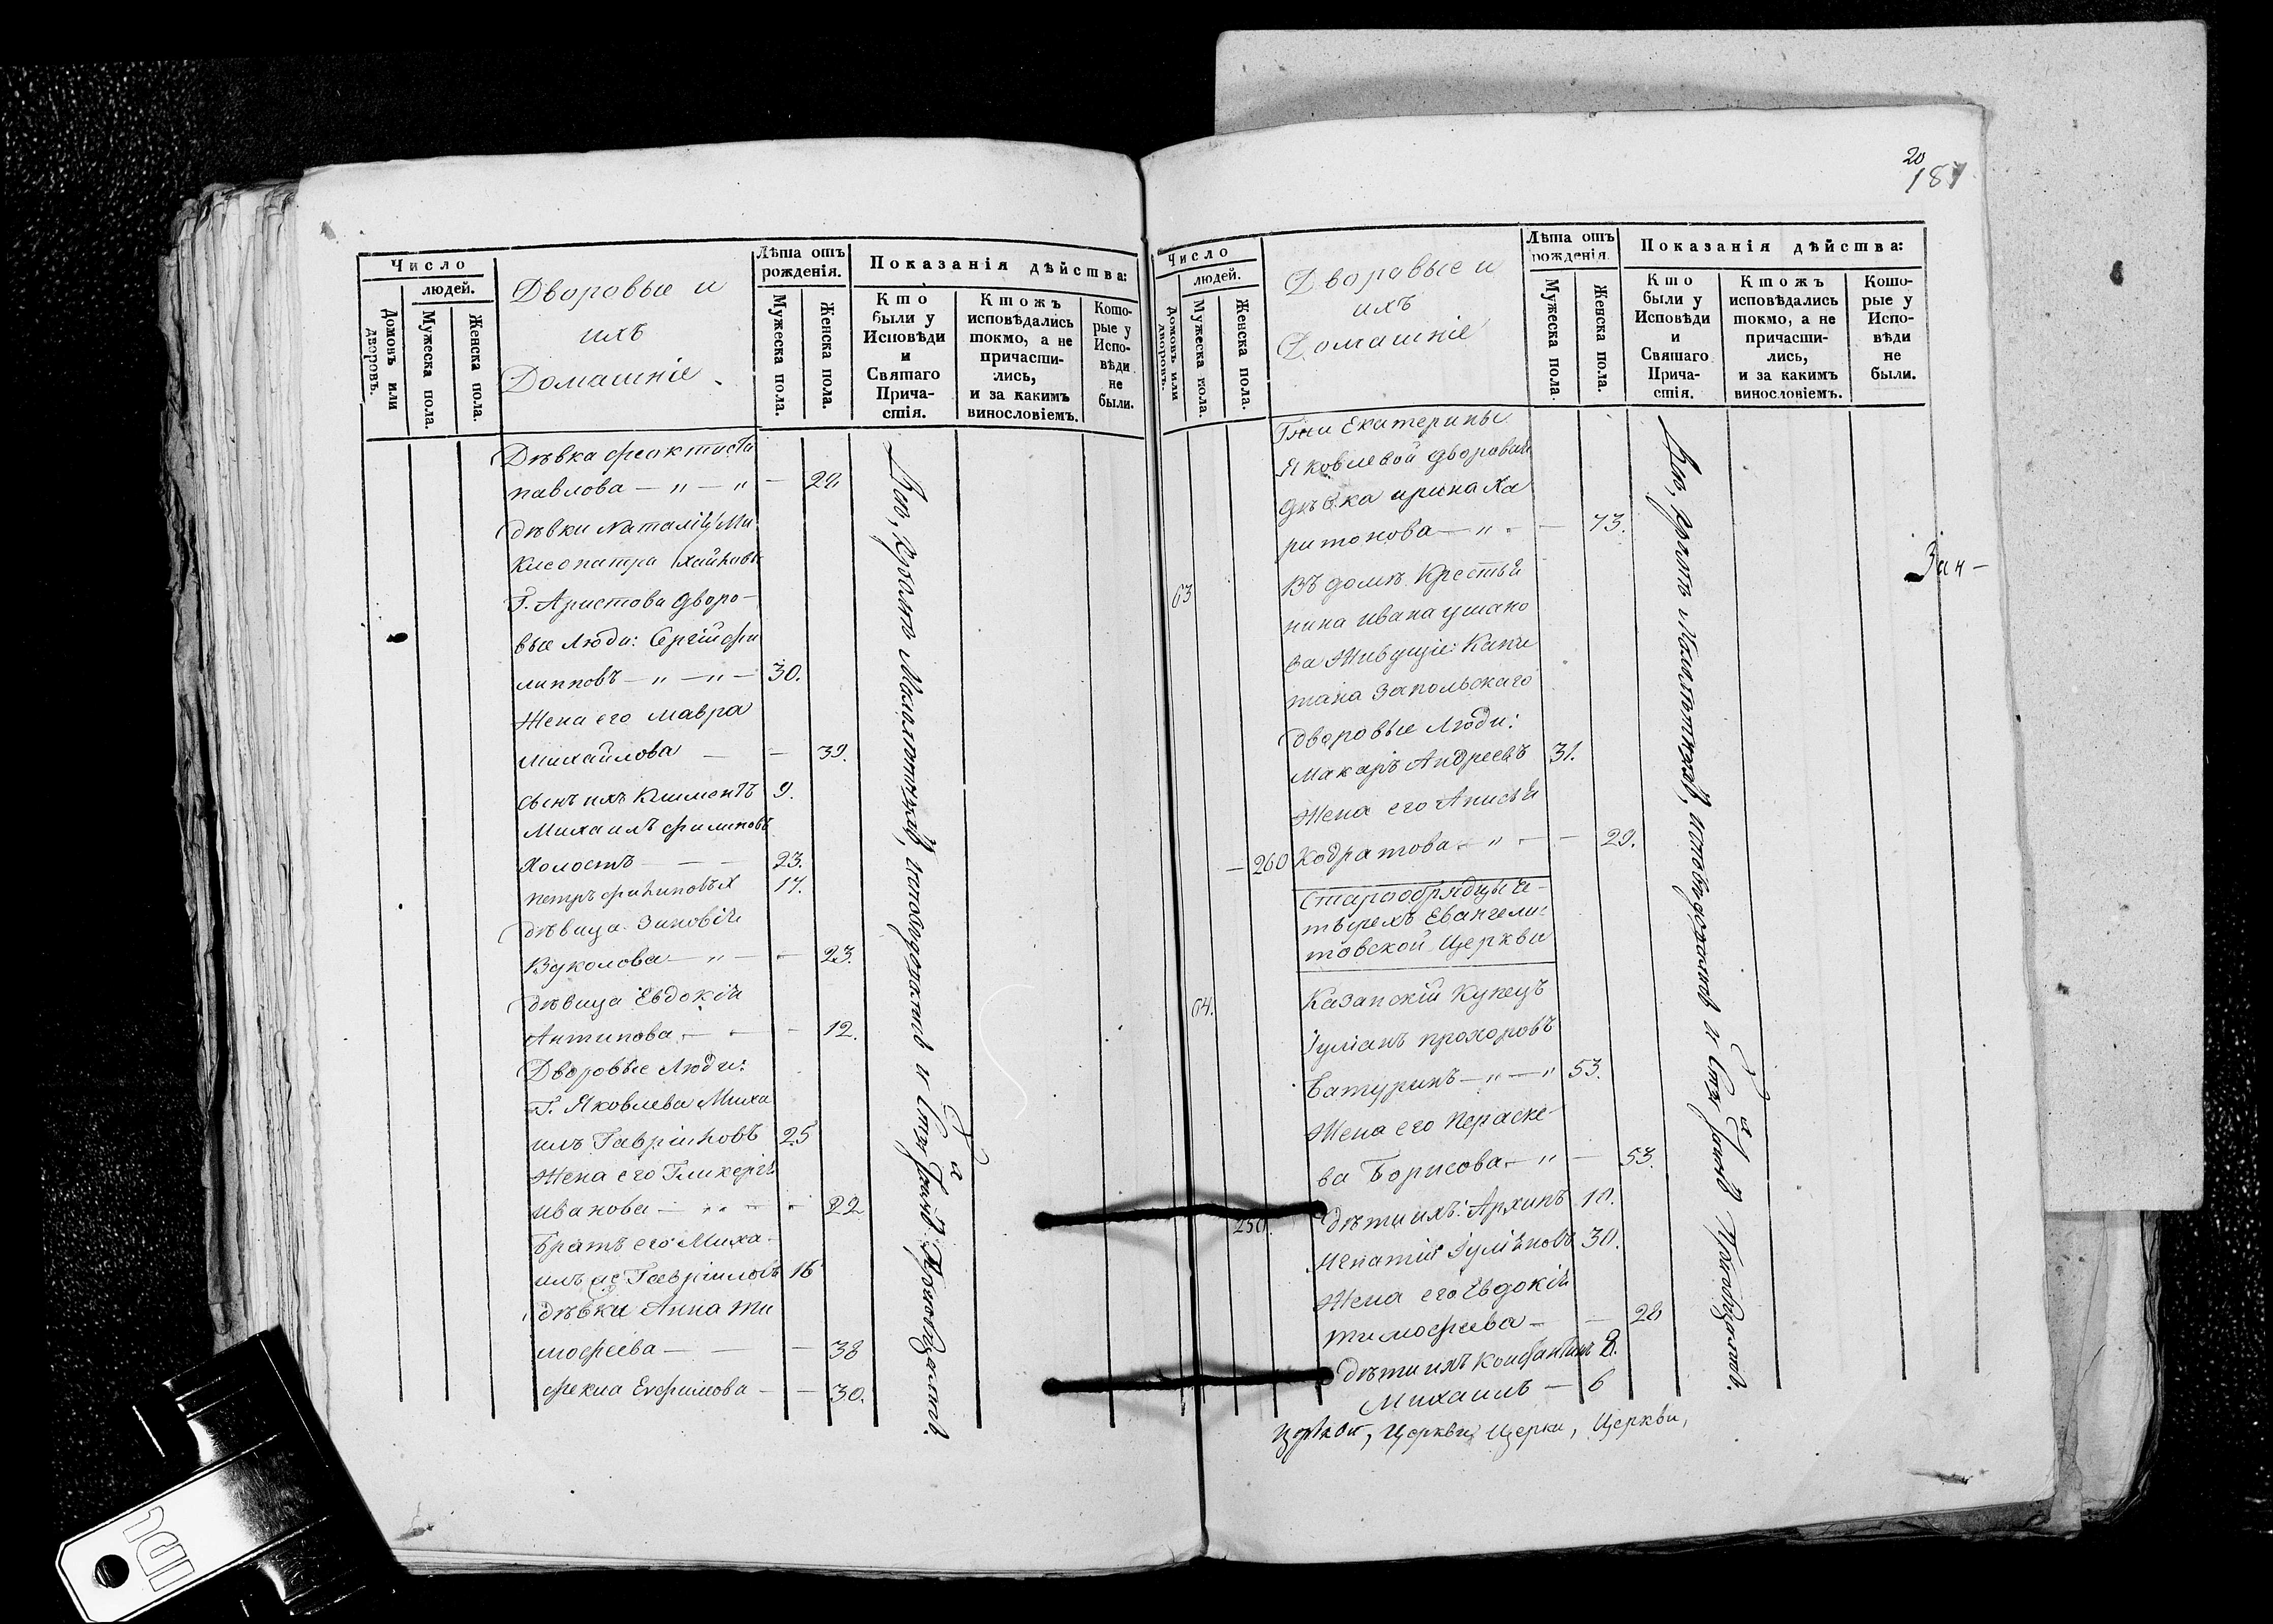 Число
людей.
Домовъ или дворовъ.
Мужеска пола.
Женска пола.
Дворовые и
ихъ
Домашніе
Лѣта отъ
рожденія.
Мужеска пола.
Женска пола.
Показанія дѣйства:
Кто
были у
Исповѣди
и
Святаго
Прича-
стія.
Ктожъ
исповѣдались
токмо, а не
причасти-
лись,
и за какимъ
винословіемъ.
Кото-
рые у
Испо-
вѣди
не
были.
Дѣвка Феоктиста
павлова — " — " — 22
дѣвки Наталія Ми
Клеопатра хайловы
Г. Аристова дворо-
вые люди: Сергій Фи
липповъ — " — " — 30.
Жена его Мавра
Михайлова — — 39.
сынъ ихъ Климентъ 9.
Михаилъ Филиповъ
холостъ — — 23.
петръ Филиповъ 17.
дѣвица Зиновія
Вуколова — " — — 23.
дѣвица Евдокія
Антипова — — — 12.
Дворовые люди:
Г. Яковлева Миха
илъ Гавриловъ 25
Жена его Гликерія
иванова — " — 22
Братъ его Миха-
илъ же Гавриловъ 16
дѣвки Анна ти
мофеева — — — 38
Фекла Ефимова — — 30.
20
187
Число
людей.
Домовъ или дворовъ.
Мужеска пола.
Женска пола.
Дворовые и
ихъ
Домашніе
Лѣта отъ
рожденія.
Мужеска пола.
Женска пола.
Показанія дѣйства:
Кто
были у
Исповѣди
и
Святаго
Прича-
стія.
Ктожъ
исповѣдались
токмо, а не
причасти-
лись,
и за какимъ
винословіемъ.
Кото-
рые у
Испо-
вѣди
не
были.
Гжи Екатерины
Яковлевой дворовая
дѣвка ирина Ха
ритонова — " — — 73.
63 Въ домѣ Крестья
нина ивана ушако
ва Живущіе: Капи
тана Запольскаго
дворовые люди:
Макаръ Андреевъ 31.
Жена его Анисья
— 260 Кодратова — " — — 29.
Старообрядцы че-
тырехъ Евангели-
товской Церкви
64. Казанскій Купецъ
Іуліанъ прохоровъ
Батуринъ — " — " 53.
Жена его Параске-
ва Борисова — " — 53.
250. дѣти ихъ: Архипъ 10.
Игнатій Іуліановъ 30.
Жена его Евдокія
тимофеева — — 28
дѣти ихъ Константинъ 8.
Михаилъ — 6
Церкви, Церкви, Церкви,